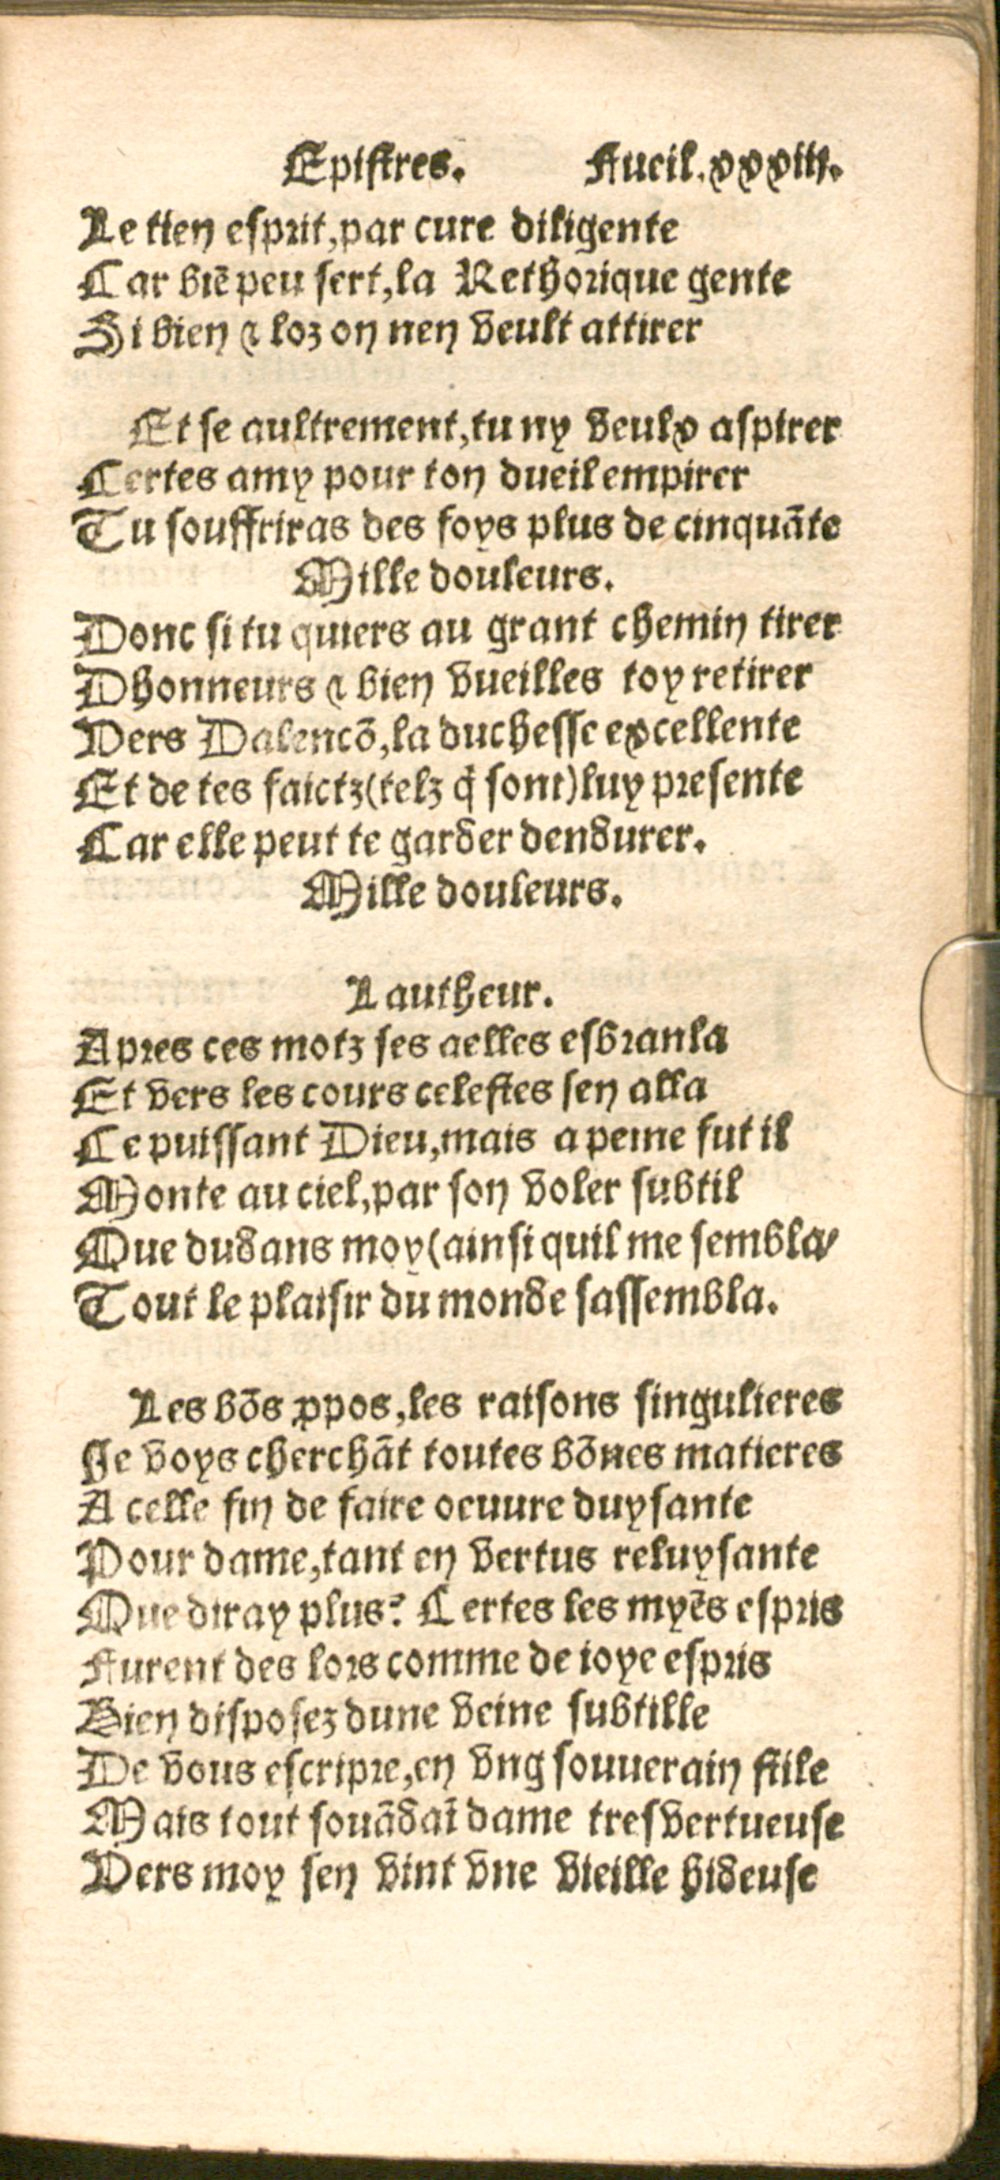 Epistres. Fueil.xxxiii.
Le tien esprit,par cure diligente
Car biẽ peu sert,la Rethorique gente
Si bien & loz on nen veult attirer
Et se aultrement,tu ny veulx aspirer
Certes amy pour ton dueil empirer
Tu souffriras des foys plus de cinquãte
Mille douleurs.
Donc si tu quiers au grant chemin tirer
Dhonneurs & bien vueilles toy retirer
Vers Dalencõ,la duchesse excellente
Et de tes faictz(telz q̃ sont)luy presente
Car elle peut te garder dendurer.
Mille douleurs.
Lautheur.
Apres ces motz ses aelles esbranla
Et vers les cours celestes sen alla
Ce puissant Dieu,mais a peine fut il
Monte au ciel,par son voler subtil
Que dudans moy(ainsi quil me sembla/
Tout le plaisir du monde sassembla.
Les bõs ꝓpos,les raisons singulieres
Je voys cherchãt toutes bõnes matieres
A celle fin de faire oeuure duysante
Pour dame,tant en vertus reluysante
Que diray plus? Certes les myẽs espris
Furent des lors comme de ioye espris
Bien disposez dune veine subtille
De vous escripre,en vng souuerain stile
Mais tout souãdaĩ dame tresvertueuse
Vers moy sen vint vne vieille hideuse